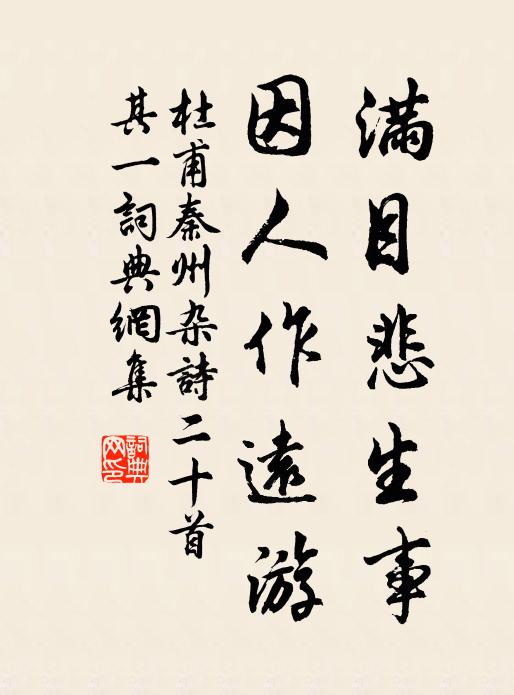 滿目悲生事
因人作遠游
杜甫秦州杂詩二十首
其一詞典網集
詞典
网印